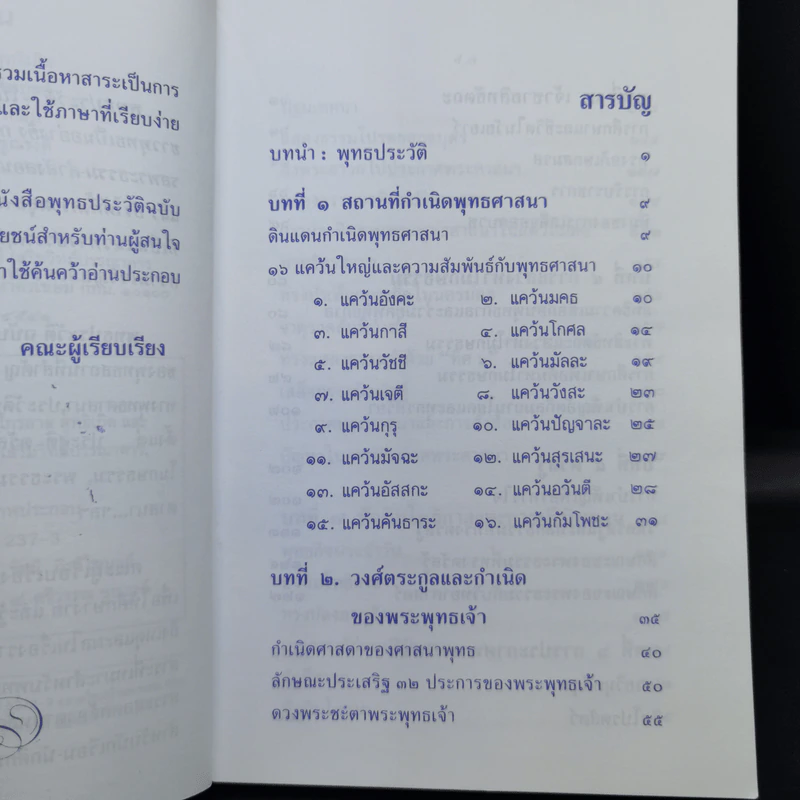 รวมเนื้อหาสาระเป็นการ
และใช้ภาษาที่เรียบง่าย
หนังสือพุทธประวัติฉบับ
โยชน์สำหรับท่านผู้สนใจ
ใช้ค้นคว้าอ่านประกอบ
คณะผู้เรียบเรียง
สารบัญ
บทนำ : พุทธประวัติ ๑
บทที่ ๑ สถานที่กำเนิดพุทธศาสนา ๙
ดินแดนกำเนิดพุทธศาสนา ๙
๑๖ แคว้นใหญ่และความสัมพันธ์กับพุทธศาสนา ๑๐
๑. แคว้นอังคะ ๒. แคว้นมคธ ๑๐
๓. แคว้นกาสี ๔. แคว้นโกศล ๑๔
๕. แคว้นวัชชี ๖. แคว้นมัลละ ๑๙
๗. แคว้นเจตี ๘. แคว้นวังสะ ๒๓
๙. แคว้นกุรุ ๑๐. แคว้นปัญจาละ ๒๕
๑๑. แคว้นมัจฉะ ๑๒. แคว้นสุรเสนะ ๒๗
๑๓. แคว้นอัสสกะ ๑๔. แคว้นอวันตี ๒๘
๑๕. แคว้นคันธาระ ๑๖. แคว้นกัมโพชะ ๓๑
บทที่ ๒. วงศ์ตระกูลและกำเนิด
ของพระพุทธเจ้า ๓๕
กำเนิดศาสดาของศาสนาพุทธ ๔๐
ลักษณะประเสริฐ ๓๒ ประการของพระพุทธเจ้า ๕๐
ดวงพระชะตาพระพุทธเจ้า ๕๕